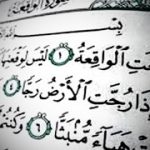 بِسْمِ
ـتِ الْوَاقِعَةُ ١ لَيْسَ لِوَقْعَتِهَا
إِذَا رُجَّتِ الْأَرْضُ رَجًّا
ـتْ هَبَآءً مُّنۢبَثًّا ٦ وَكُنتُمْ